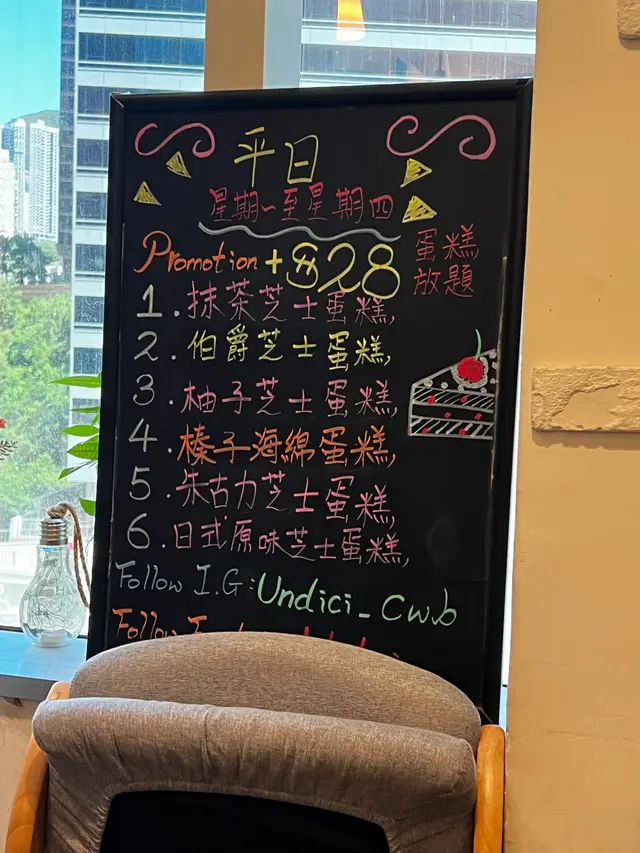 平日
星期一至星期四
Promotion + $28 蛋糕
放題
1. 抹茶芝士蛋糕,
2. 伯爵芝士蛋糕,
3. 柚子芝士蛋糕,
4. 榛子海綿蛋糕,
5. 朱古力芝士蛋糕,
6. 日式原味芝士蛋糕,
Follow I.G: Undici_Cwb
Follow